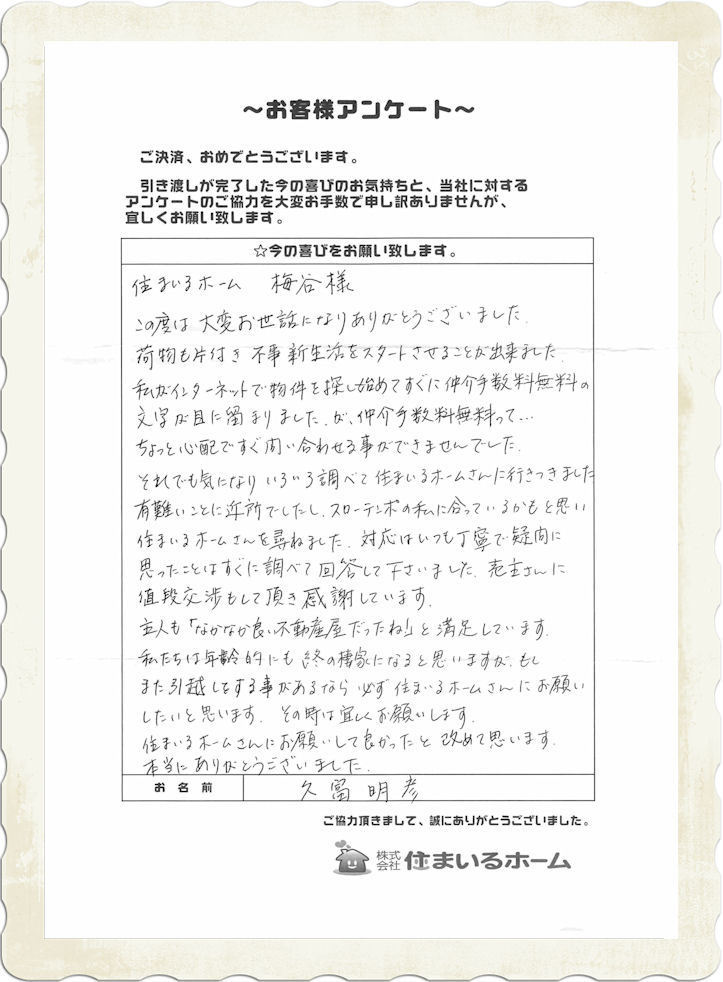 ～お客様アンケート～
ご決済、おめでとうございます。
引き渡しが完了した今の喜びのお気持ちと、当社に対する
アンケートのご協力を大変お手数で申し訳ありませんが、
宜しくお願い致します。
☆今の喜びをお願い致します。
住まいるホーム 梅谷様
この度は大変お世話になりありがとうございました.
荷物も片付き不事新生活をスタートさせることが出来ました.
私がインターネットで物件を探し始めてすぐに仲介手数料無料の
文字が目に留まりました.が、仲介手数料無料って…
ちょっと心配ですぐ問い合わせる事ができませんでした.
それでも気になりいろいろ調べて住まいるホームさんに行きつきました
有難いことに近所でしたし、スローテンポの私に合っているかもと思い
住まいるホームさんを尋ねました. 対応はいつも丁寧で疑問に
思ったことはすぐに調べて回答して下さいました. 売主さんに
値段交渉もして頂き感謝しています.
主人も「なかなか良い不動産屋だったね!」と満足しています.
私たちは年齢的にも終の棲家になると思いますが、もし
また引越しをする事があるなら必ず住まいるホームさんにお願い
したいと思います. その時は宜しくお願いします.
住まいるホームさんにお願いして良かったと改めて思います.
本当にありがとうございました.
お名前 久富明彦
ご協力頂きまして、誠にありがとうございました。
株式会社 住まいるホーム